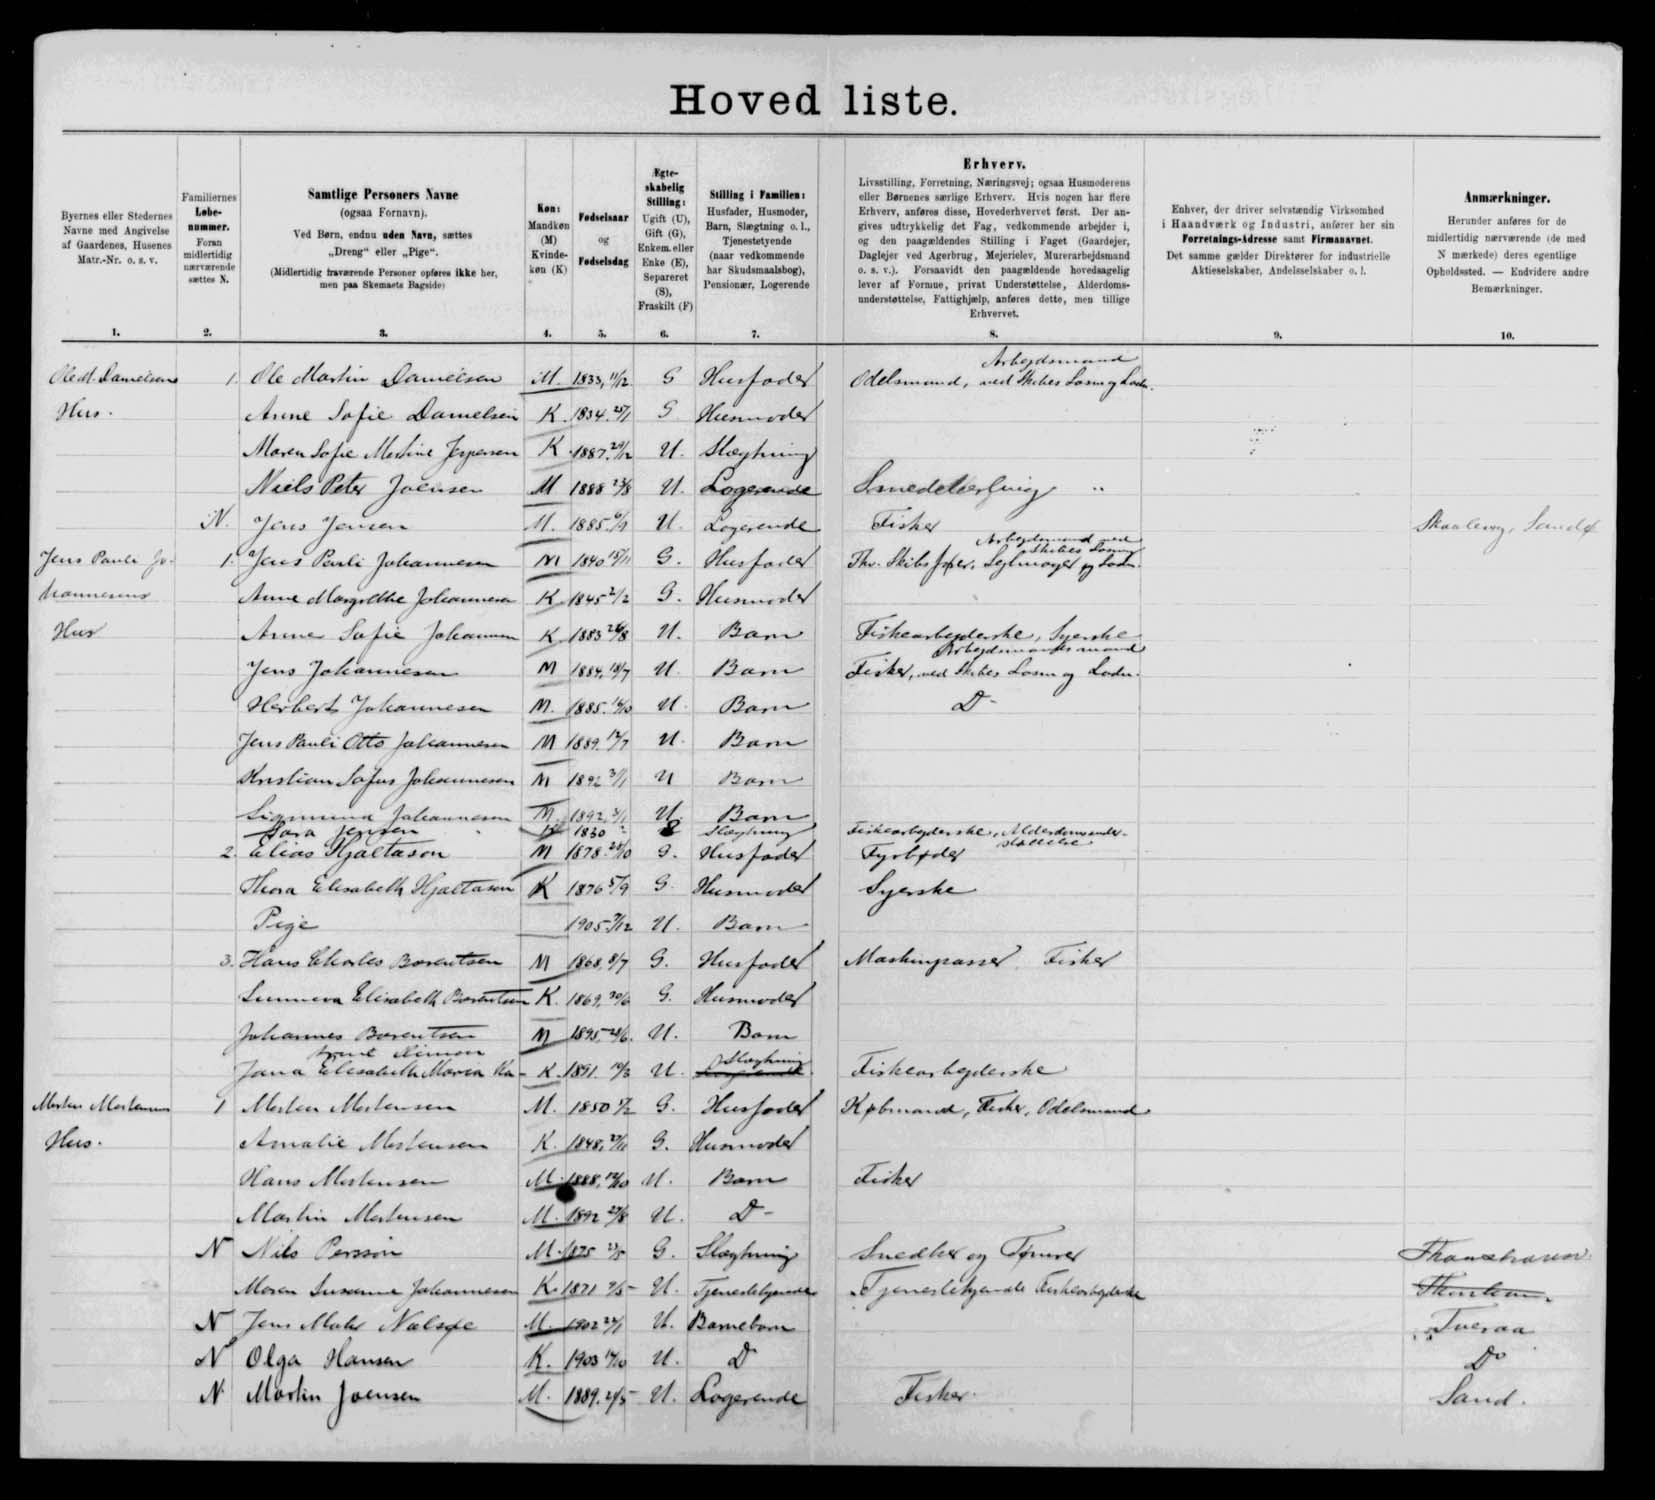 Hoved liste.
Byernes eller Stedernes
Navne med Angivelse
af Gaardenes, Husenes
Matr.-Nr. o. s. v.
1.
Familiernes
Løbe-
nummer.
Foran
midlertidig
nærværende
sættes N.
2.
Samtlige Personers Navne
(ogsaa Fornavn).
Ved Børn, endnu uden Navn, sættes
„Dreng“ eller „Pige“.
(Midlertidig fraværende Personer opføres ikke her,
men paa Skemaets Bagside)
3.
Køn:
Mandkøn
(M)
Kvinde-
køn (K)
4.
Fødselsaar
og
Fødselsdag
5.
Ægte-
skabelig
Stilling:
Ugift (U),
Gift (G),
Enkem. eller
Enke (E),
Separeret
(S),
Fraskilt (F)
6.
Stilling i Familien:
Husfader, Husmoder,
Barn, Slægtning o. l.,
Tjenestetyende
(naar vedkommende
har Skudsmaalsbog),
Pensionær, Logerende
7.
Erhverv.
Livsstilling, Forretning, Næringsvej; ogsaa Husmoderens
eller Børnenes særlige Erhverv. Hvis nogen har flere
Erhverv, anføres disse, Hovederhvervet først. Der an-
gives udtrykkelig det Fag, vedkommende arbejder i,
og den paagældendes Stilling i Faget (Gaardejer,
Daglejer ved Agerbrug, Mejerielev, Murerarbejdsmand
o. s. v.). Forsaavidt den paagældende hovedsagelig
lever af Formue, privat Understøttelse, Alderdoms-
understøttelse, Fattighjælp, anføres dette, men tillige
Erhvervet.
8.
Enhver, der driver selvstændig Virksomhed
i Haandværk og Industri, anfører her sin
Forretnings-Adresse samt Firmanavnet.
Det samme gælder Direktører for industrielle
Aktieselskaber, Andelsselskaber o. l.
9.
Anmærkninger.
Herunder anføres for de
midlertidig nærværende (de med
N mærkede) deres egentlige
Opholdssted. — Endvidere andre
Bemærkninger.
10.
Arbejdsmand
Ole M. Danielsens 1. Ole Martin Danielsen M. 1833, 11/12 G Husfader Odelsmand, ved Skibes Losn og Ladn.
Hus. Anne Sofie Danielsen K. 1834. 25/1 G Husmoder
Maren Sofie Martine Jespersen K. 1887. 29/12 U. Slægtning
Niels Peter Joensen M 1888 23/8 U. Logerende Smedelærling "
N. Jens Jensen M. 1885. U. Logerende Fisker Skaalevig, Sandø
Arbejdsmand ved
Skibes Losning
Jens Pauli Jo- 1. Jens Pauli Johannesen M 1840 15/11 G. Husfader Fhv. Skibsfører, Sejlmager og Ladn.
hannesens Anne Margrethe Johannesen K 1845 2/2 G. Husmoder
Hus Anne Sofie Johannesen K 1883 26/8 U. Barn Fiskearbejderske, Syerske
Arbejdsmand
Jens Johannesen M 1884, 18/7 U. Barn Fisker, ved Skibes Losn og Ladn.
Herbert Johannesen M. 1885. 14/10 U. Barn D-
Jens Pauli Otto Johannesen M 1889. 17/7 U. Barn
Kristian Sofus Johannesen M 1892 3/1 U Barn
Sigmund Johannesen M 1892, 3/1 U. Barn
Sara Jensen 1830 ? Slægtning Fiskearbejderske, Alderdomsunder-
støttelse
2. Elias Hjaltason M 1878. 20/10 G. Husfader Fyrbøder
Thora Elisabeth Hjaltason K 1876 5/9 G. Husmoder Syerske
Pige 1905 U. Barn
3. Hans Charles Barentsen M 1868, 8/7 G. Husfader Maskinpasser Fisker
Sunneva Elisabeth Barentsen K. 1869, 20/6 G. Husmoder
Johannes Barentsen M 1895 28/6. U. Barn
Slægtning
Jana Elisabeth Maria K. 1891. 10/3 U. Logerende Fiskearbejderske
Morten Mortensens 1 Morten Mortensen M. 1850 G. Husfader Købmand, Fisker, Odelsmand
Hus. Amalie Mortensen K. 1848, 27/11 G. Husmoder
Hans Mortensen M. 1888, 12/10 U. Barn Fisker
Martin Mortensen M. 1892 27/8 U. D-
N Nils Persson M. 1875 23/5 G. Slægtning Snedker og Tømrer Thorshavn
Maren Susanne Johannesen K. 1871 U. Tjenestetyende Tjenestetyende Fiskearbejderske
N Jens Nolsøe M. 1902 22/1 U. Barnebarn Tveraa
N Olga Hansen K. 1903 14/10 U. D Do
N Martin Joensen M. 1889. 21/5 U. Logerende Fisker. Sand.